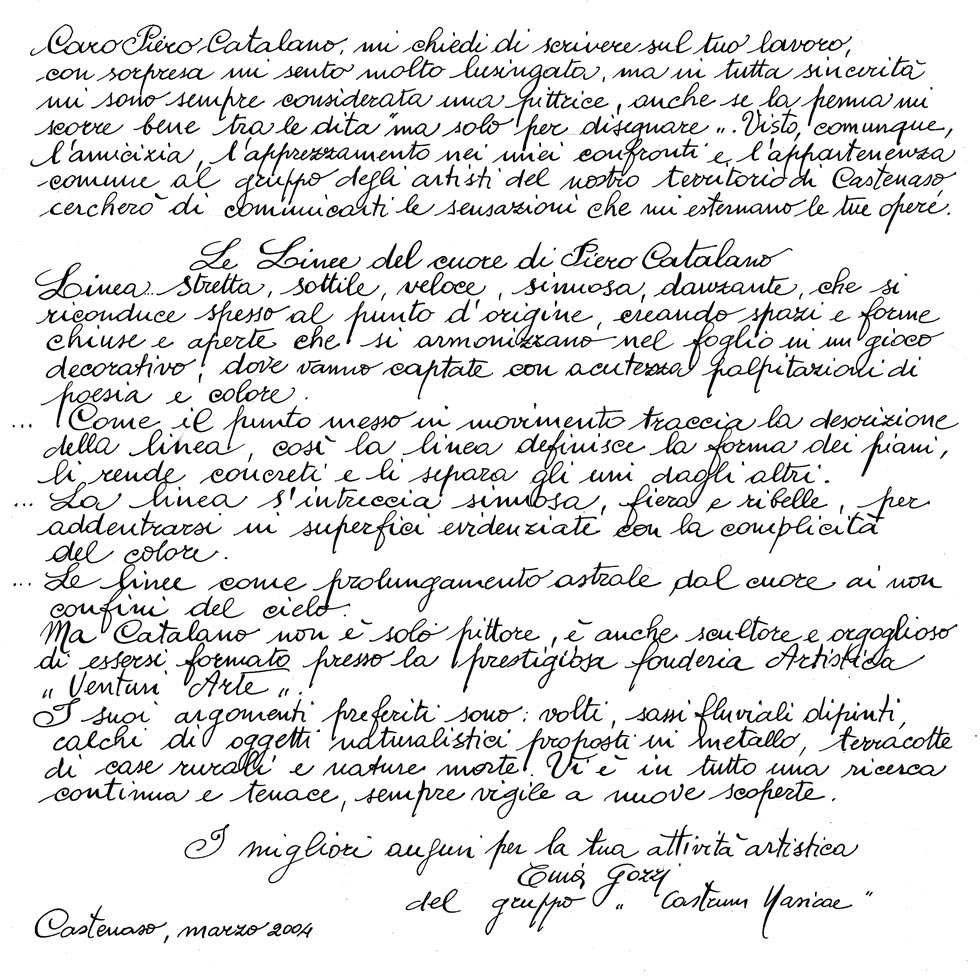 Caro Piero Catalano, mi chiedi di scrivere sul tuo lavoro,
con sorpresa mi sento molto lusingata, ma in tutta sincerità
mi sono sempre considerata una pittrice, anche se la penna mi
scorre bene tra le dita "ma solo per disegnare". Visto, comunque,
l'amicizia, l'apprezzamento nei miei confronti e, l'appartenenza
comune al gruppo degli artisti del nostro territorio di Castenaso
cercherò di comunicarti le sensazioni che mi esternano le tue opere.
Le Linee del cuore di Piero Catalano
Linea stretta, sottile, veloce, sinuosa, danzante, che si
riconduce spesso al punto d'origine, creando spazi e forme
chiuse e aperte che si armonizzano nel foglio in un gioco
decorativo, dove vanno captate con acutezza palpitazioni di
poesia e colore.
... Come il punto messo in movimento traccia la descrizione
della linea, così la linea definisce la forma dei piani,
li rende concreti e li separa gli uni dagli altri.
... La linea s'intreccia sinuosa, fiera e ribelle, per
addentrarsi in superfici evidenziate con la complicità
del colore.
... Le linee come prolungamento astrale dal cuore ai non
confini del cielo.
Ma Catalano non è solo pittore, è anche scultore e orgoglioso
di essersi formato presso la prestigiosa fonderia Artistica
"Venturi Arte".
I suoi argomenti preferiti sono: volti, sassi fluviali dipinti,
calchi di oggetti naturalistici proposti in metallo, terracotte
di case rurali e nature morte. Vi è in tutto una ricerca
continua e tenace, sempre vigile a nuove scoperte.
I migliori auguri per la tua attività artistica
Gozzi
del gruppo "Castrum Nasicae"
Castenaso, marzo 2004